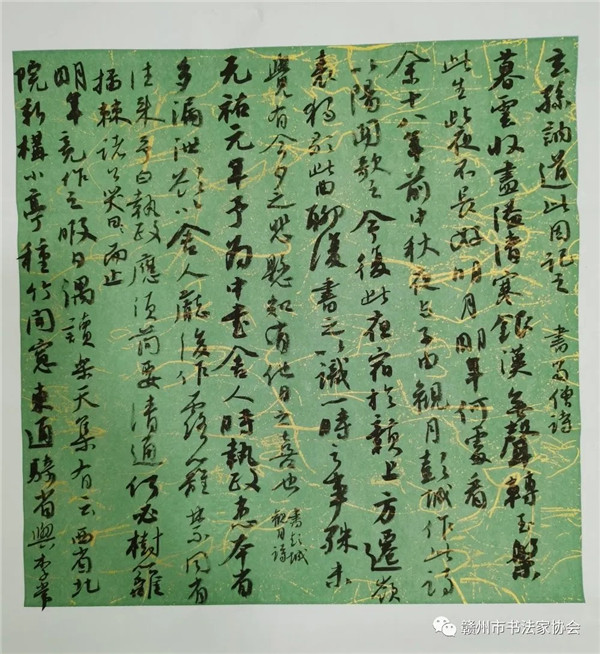 此因記之 書
暮雲收盡溢清寒銀漢無聲轉玉盤
此生此夜不長好明月明年何處看
余十八年前中秋夜與子由觀月彭城作此詩
以陽關歌之今復此夜宿於贛上方遷嶺
表獨歌此曲聊復書之以識一時之事殊未
覺有今夕之悲懸知有他日之喜也 書彭城
觀月詩
元祐元年予為中書舍人時執政患本省
多漏泄欲以舍人廳後作露籬禁同省
往來予白執政應須簡要清通何必樹籬
插棘諸公笑而止
明年竟作之暇日偶讀樂天集有云西省北
院新構小亭種竹開窗東通騎省與李常
赣州市书法家协会